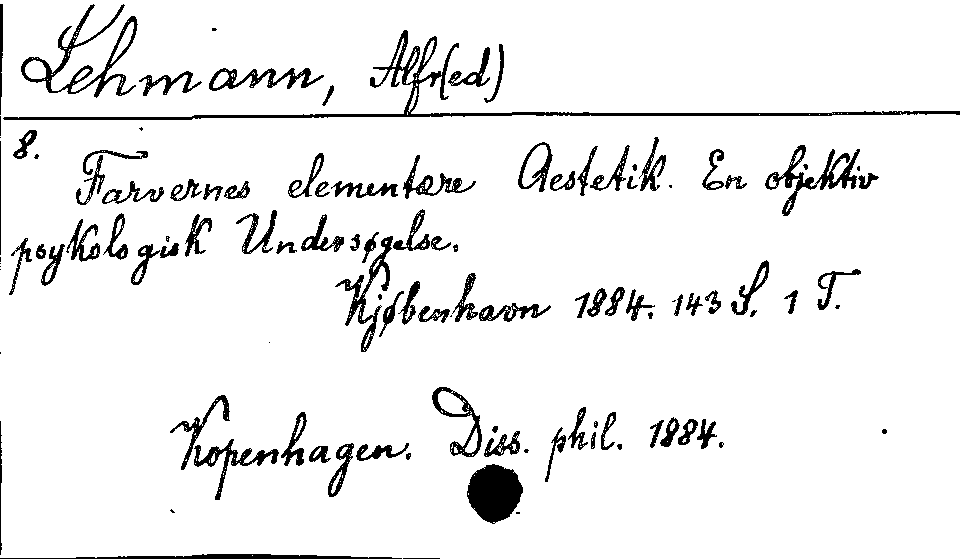 Lehmann, Alfr(ed)
8.
Farvernes elementære Aestetik. En objektiv
psykologisk Undersøgelse.
Kjøbenhavn 1884. 143 S. 1 T.
Kopenhagen. Diss. phil. 1884.